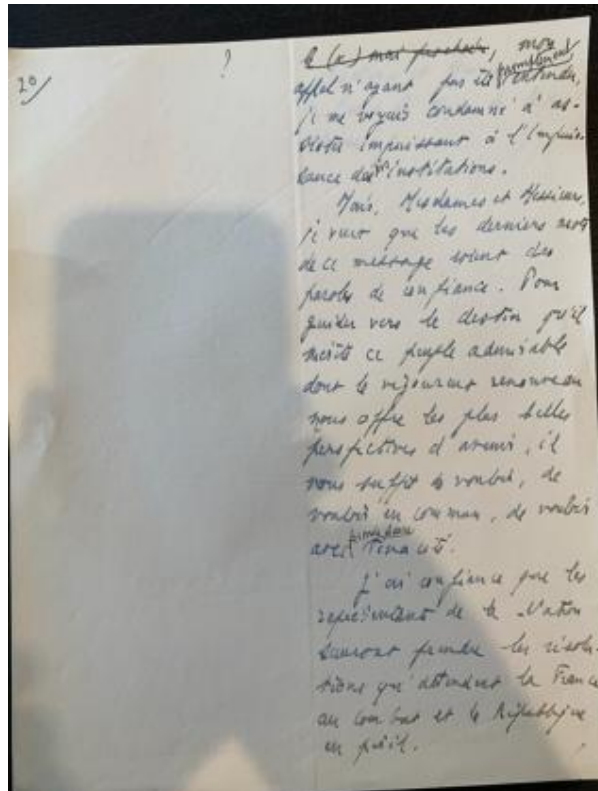 20/
?
mon
appel n'ayant pas été promptement entendu,
je me voyais condamné à as-
sister impuissant à l'impuis-
sance des institutions.
Mais, Mesdames et Messieurs,
je veux que les derniers mots
de ce message soient des
paroles de confiance. Pour
guider vers le destin qu'il
mérite ce peuple admirable
dont le vigoureux renouveau
nous offre les plus belles
perspectives d'avenir, il
nous suffit de vouloir, de
vouloir en commun, de vouloir
avec ténacité.
J'ai confiance que les
représentants de la Nation
sauront prendre les résolu-
tions qu'attendent la France
au combat et la République
en péril.